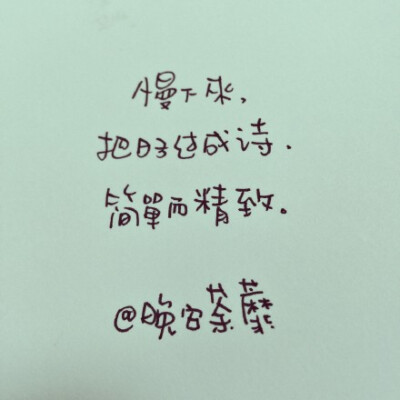 慢下来,
把日子过成诗.
简單而精致。
@晚安荼蘼